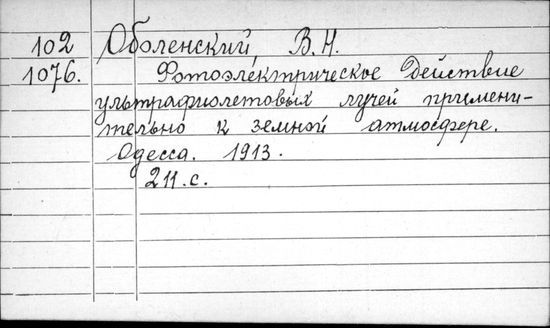 102 Оболенский, В.Н.
1076. Фотоэлектрическое действие
ультрафиолетовых лучей примени-
тельно к земной атмосфере.
Одесса. 1913.
211.с.